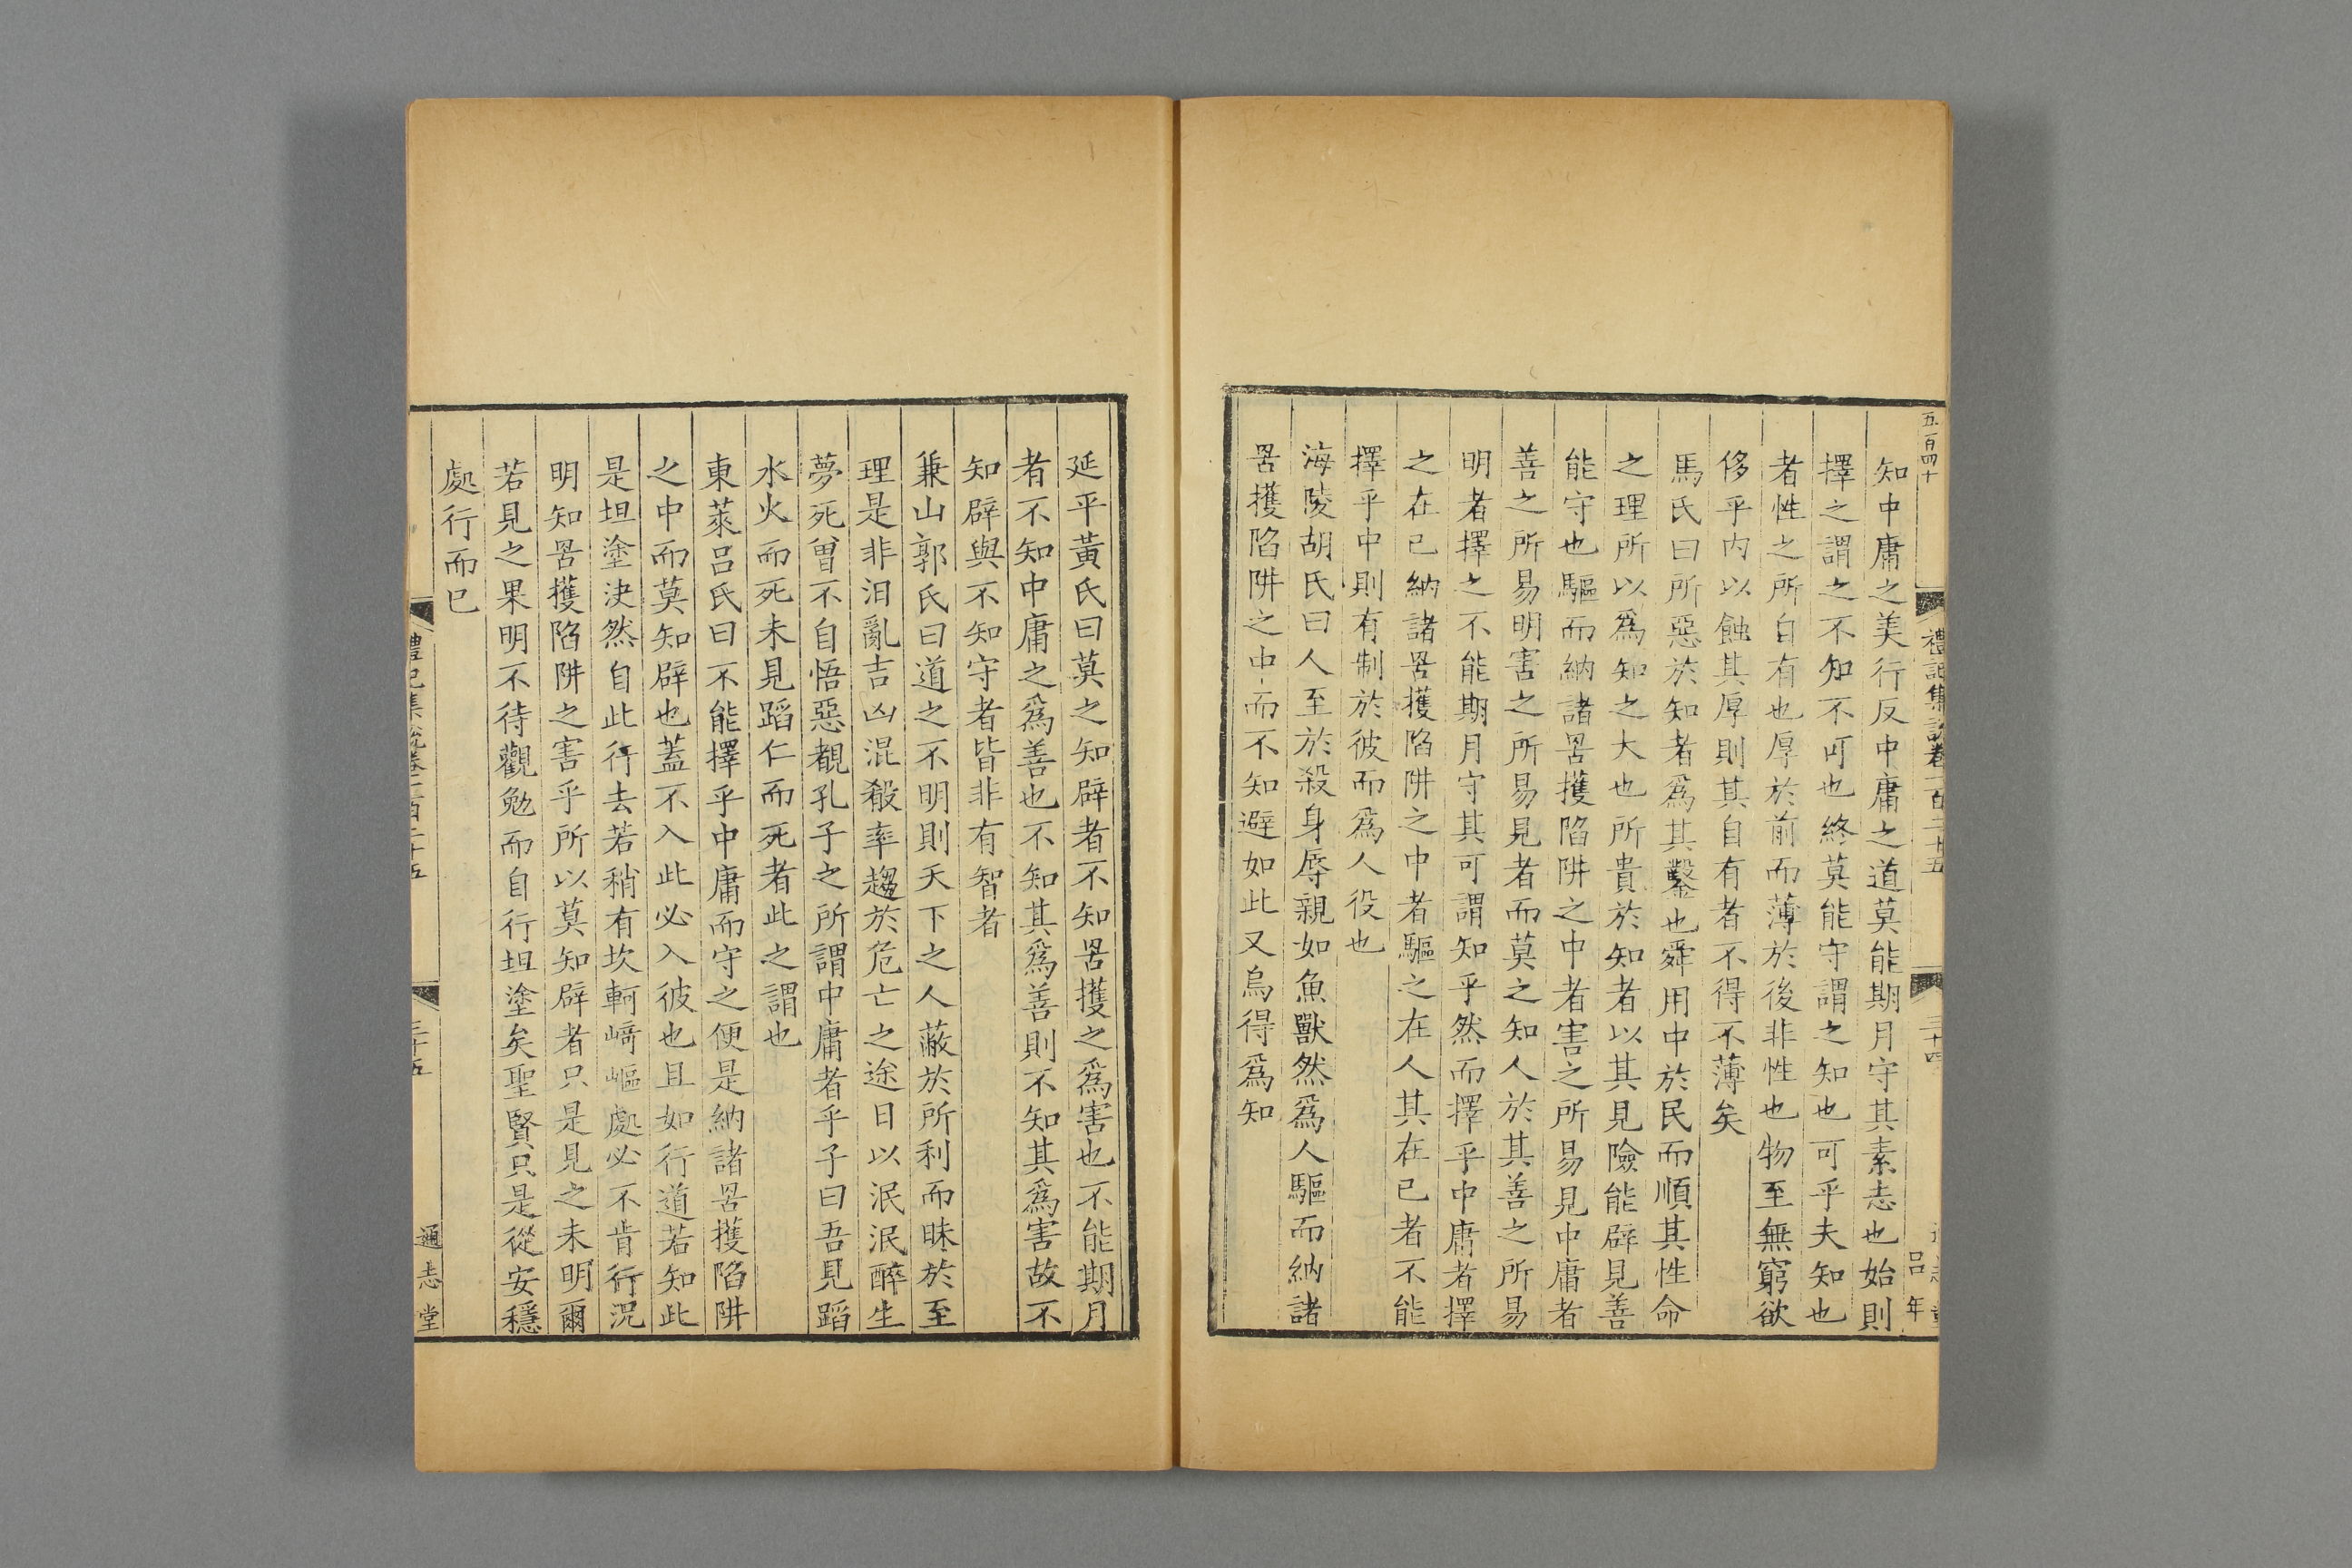 五百四十
禮記集說卷一百二十五
三十四
呂年
知中庸之美行反中庸之道莫能期月守其素志也始則
擇之謂之不知不可也終莫能守謂之知也可乎夫知也
者性之所自有也厚於前而薄於後非性也物至無窮欲
侈乎内以蝕其厚則其自有者不得不薄矣
馬氏曰所惡於知者爲其鑿也舜用中於民而順其性命
之理所以爲知之大也所貴於知者以其見險能辟見善
能守也驅而納諸罟擭陷阱之中者害之所易見中庸者
善之所易明害之所易見者而莫之知人於其善之所易
明者擇之不能期月守其可謂知乎然而擇乎中庸者擇
之在已納諸罟擭陷阱之中者驅之在人其在已者不能
擇乎中則有制於彼而爲人役也
海陵胡氏曰人至於殺身辱親如魚獸然爲人驅而納諸
罟擭陷阱之中而不知避如此又烏得爲知
延平黃氏曰莫之知辟者不知罟擭之爲害也不能期月
者不知中庸之爲善也不知其爲善則不知其爲害故不
知辟與不知守者皆非有智者
兼山郭氏曰道之不明則天下之人蔽於所利而昧於至
理是非汨亂吉凶混殽率趨於危亡之途日以泯泯醉生
夢死曾不自悟惡覩孔子之所謂中庸者乎子曰吾見蹈
水火而死未見蹈仁而死者此之謂也
東萊呂氏曰不能擇乎中庸而守之便是納諸罟擭陷阱
之中而莫知辟也蓋不入此必入彼也且如行道若知此
是坦塗決然自此行去若稍有坎軻﨑嶇處必不肯行況
明知罟擭陷阱之害乎所以莫知辟者只是見之未明爾
若見之果明不待觀勉而自行坦塗矣聖賢只是從安穩
處行而已
禮記集說卷一百二十五
三十五
通志堂